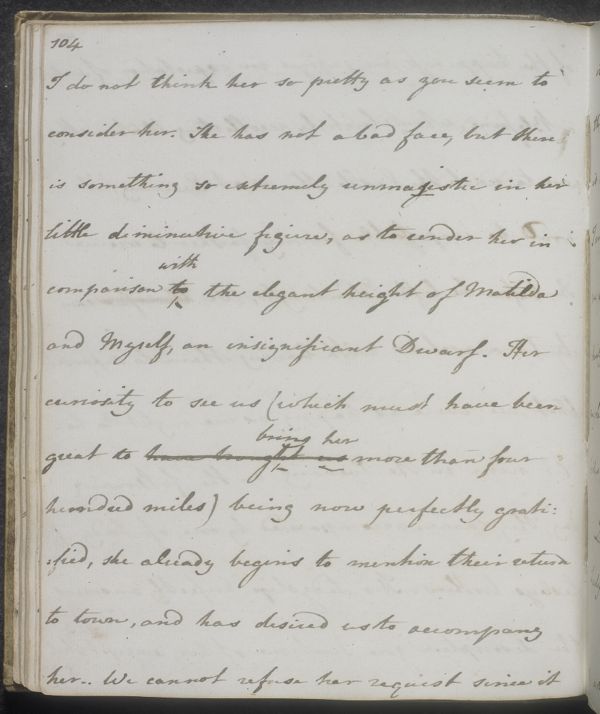 104
I do not think her so pretty as you seem to
consider her. She has not a bad face, but there
is something so extremely unmajestic in her
little diminutive figure, as to render her in
with
comparison to the elegant height of Matilda
and Myself, an insignificant Dwarf. Her
curiosity to see us (which must have been
bring her
great to have brought us more than four
hundred miles) being now perfectly grati:
:fied, she already begins to mention their return
to town, and has desired us to accompany
her.. We cannot refuse her request since it